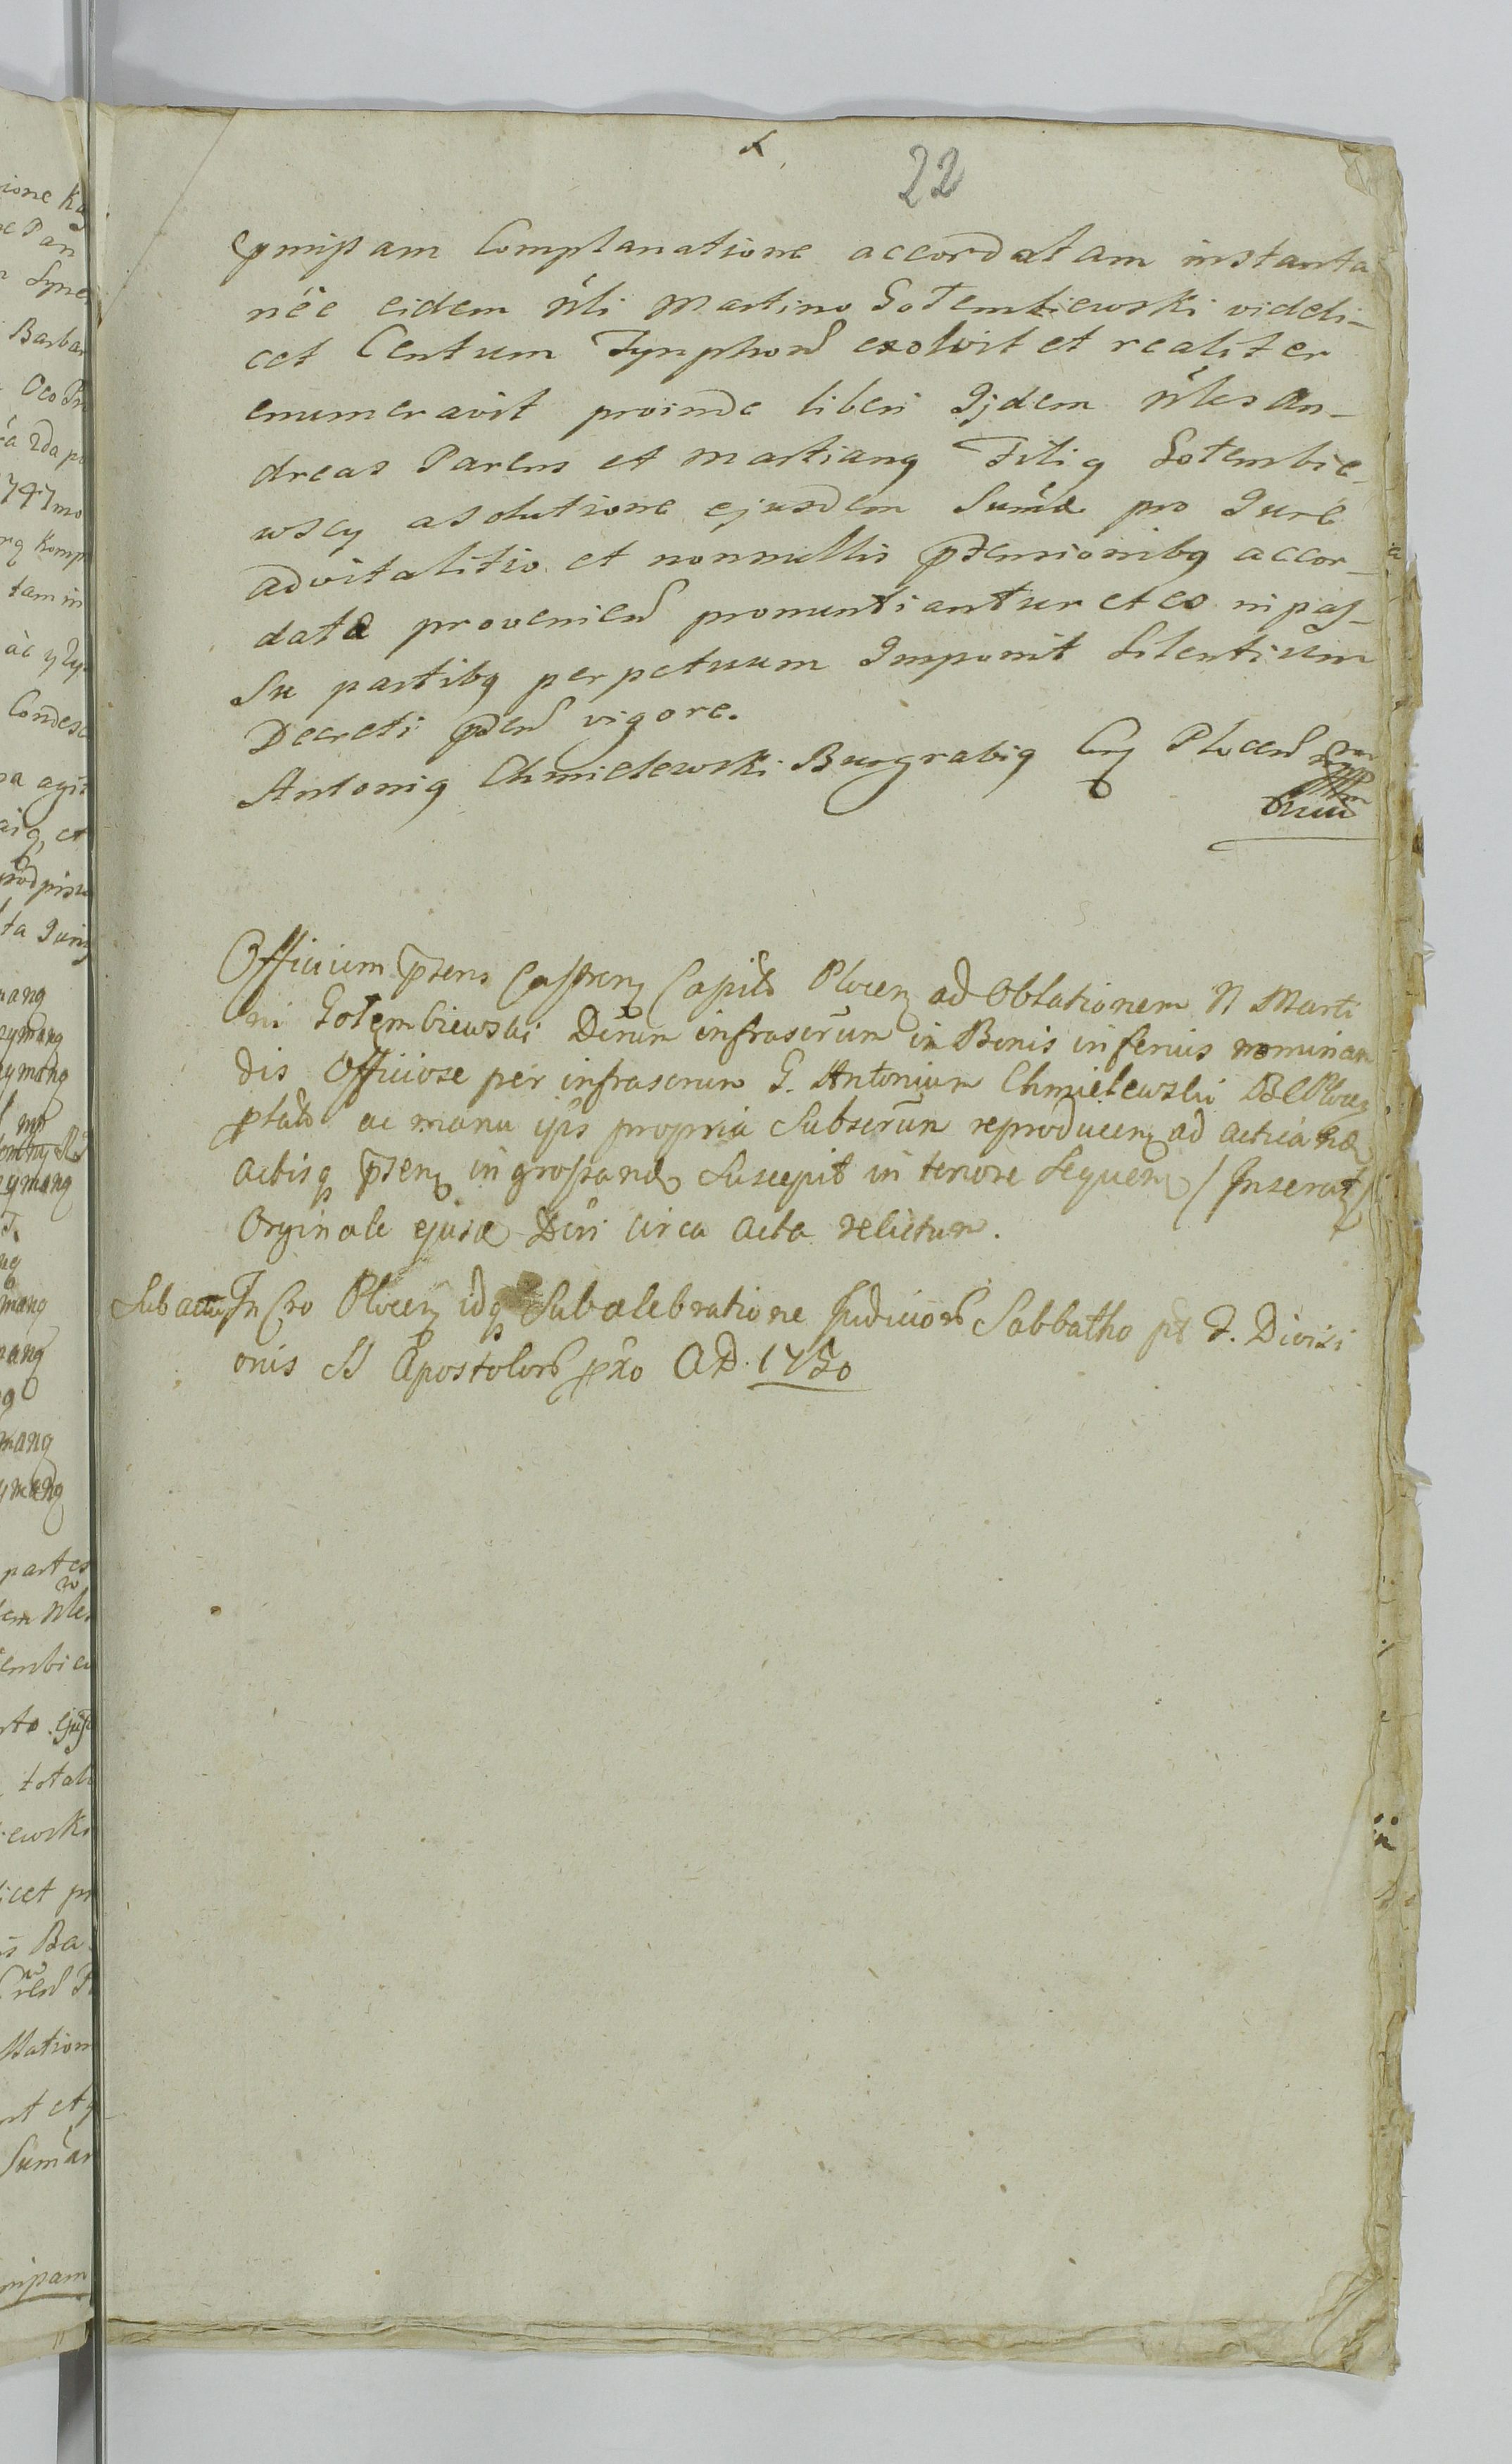 22
pmissam Complanatione accordatam instanta
née eidem Nli Martino Gołembiewski videli-
cet Centum Tynphorũ exolvit et realiter
enumeravit proinde liberi Ijdem Nles An-
dreas Parens et Martiang Filig Gołembie-
wscy a solutione ejusdem Suṁæ pro Jure
advitalitio et nonnullis ptensionibg accor-
datæ provenieñ pronuntiantur et eo in pas-
su partibg perpetuum Imponit Silentium
Decreti pñen vigore.
Antonig Chmielewski Burgrabig CrjPloceñ
Officium pñens Castren Capitã Plocen ad Oblationem N Marti
ni Gołembiewski Dcrum infrascrum in Bonis inferius nominan
dis Officiose per infrascrum G. Antonium Chmielewski B C Plocen
platũ ac manu ipis propria Subscrum reproducen ad acticand
actisq pñen ingrossand Suscepit in tenore Sequen / Inserat /
Orginale ejusd Dcri circa Acta relictum.
Sub actu In Cro Plocen idq Sub celebratione Judiciorũ Sabbatho pt F. Divisi
onis SS Apostolorũ pxo A D. 1750